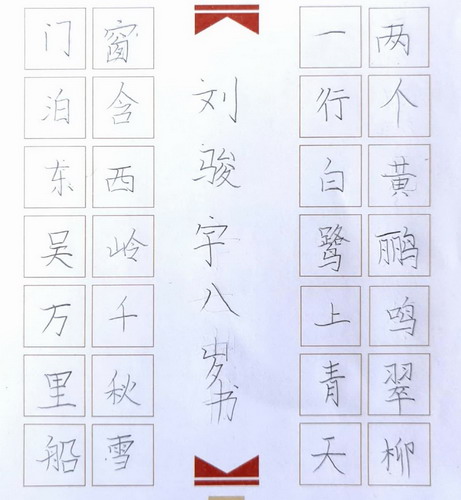 两个黄鹂鸣翠柳
一行白鹭上青天
刘骏宇八岁书
窗含西岭千秋雪
门泊东吴万里船